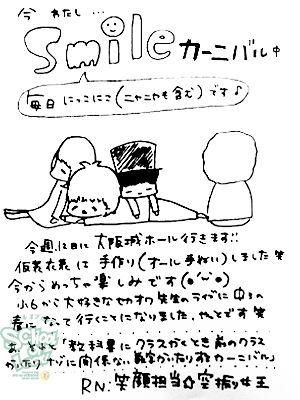 今 わたし…
Smile カーニバル中
毎日にっこにこ(ニヤニヤも含む)です♪
今週12日に 大阪城ホール行きます!!
仮装衣装は 手作り(オール手ぬい)しました笑
今からめっちゃ楽しみです(๑'ω'๑)
小6から大好きなセカオワ先生のライブに中3の
春になって行くことになりました。やっとです笑
あ、そとそと「教科書にクラスかくとき前のクラス
かいたり ナゾに関係ない数字かいたりするカーニバル」
RN:笑顔担当☆空振り女王